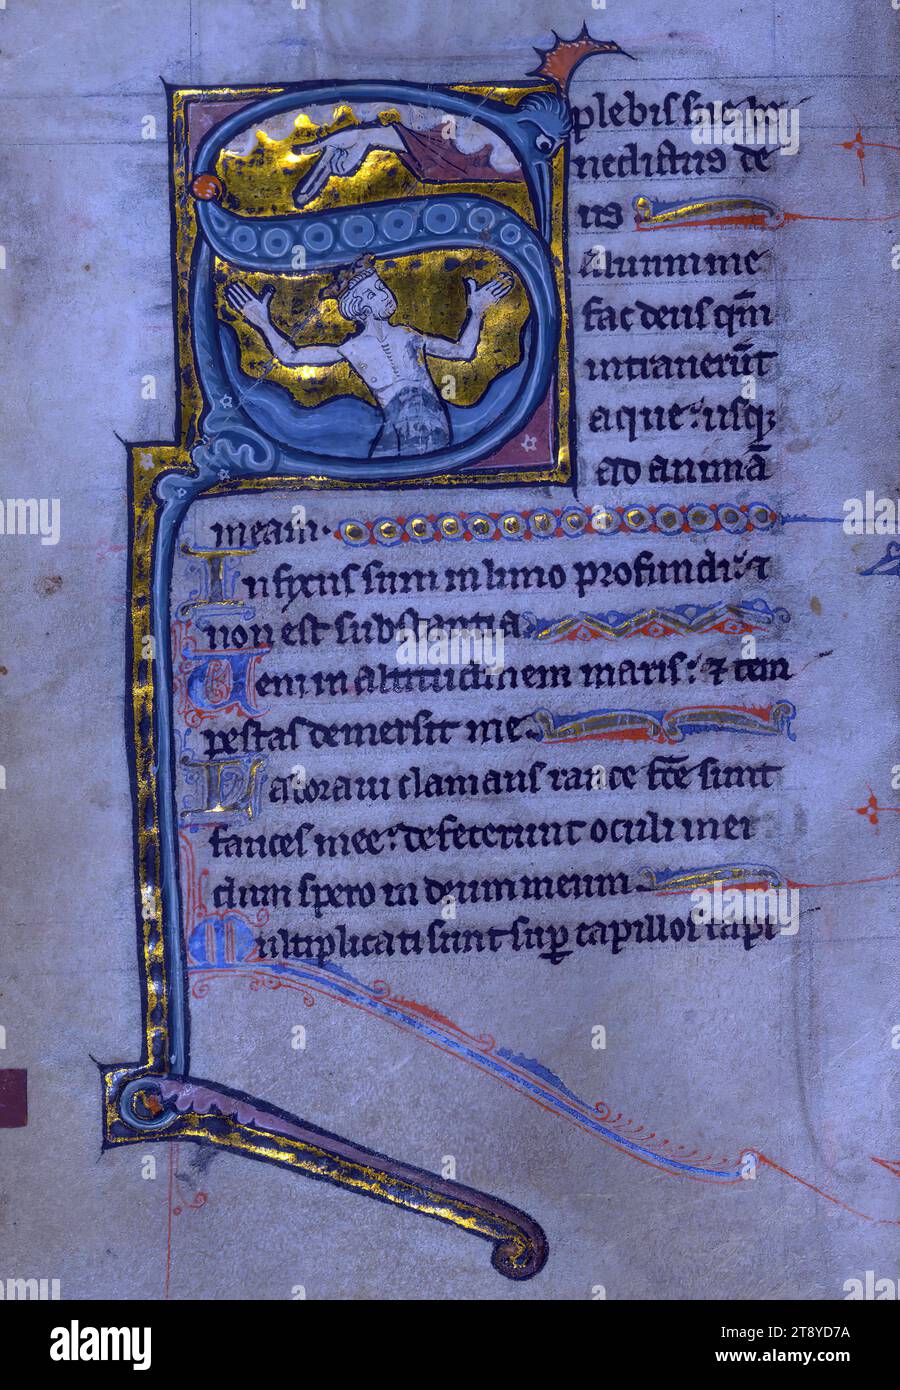 plebis sue be
nedictus de
us
Saluum me
fac deus qm̄
intrauerūt
aque: usq
ad animā
meam.
Infixus sum in limo profundi: et
non est substantia
Veni in altitudinem maris: et tem
pestas demersit me
Laboraui clamans rauce fc̄e sunt
fauces mee: defecerunt oculi mei
dum spero in deum meum
Multiplicati sunt sup̱ capillos capi
alamy
Image ID: 2T8YD7A
www.alamy.com